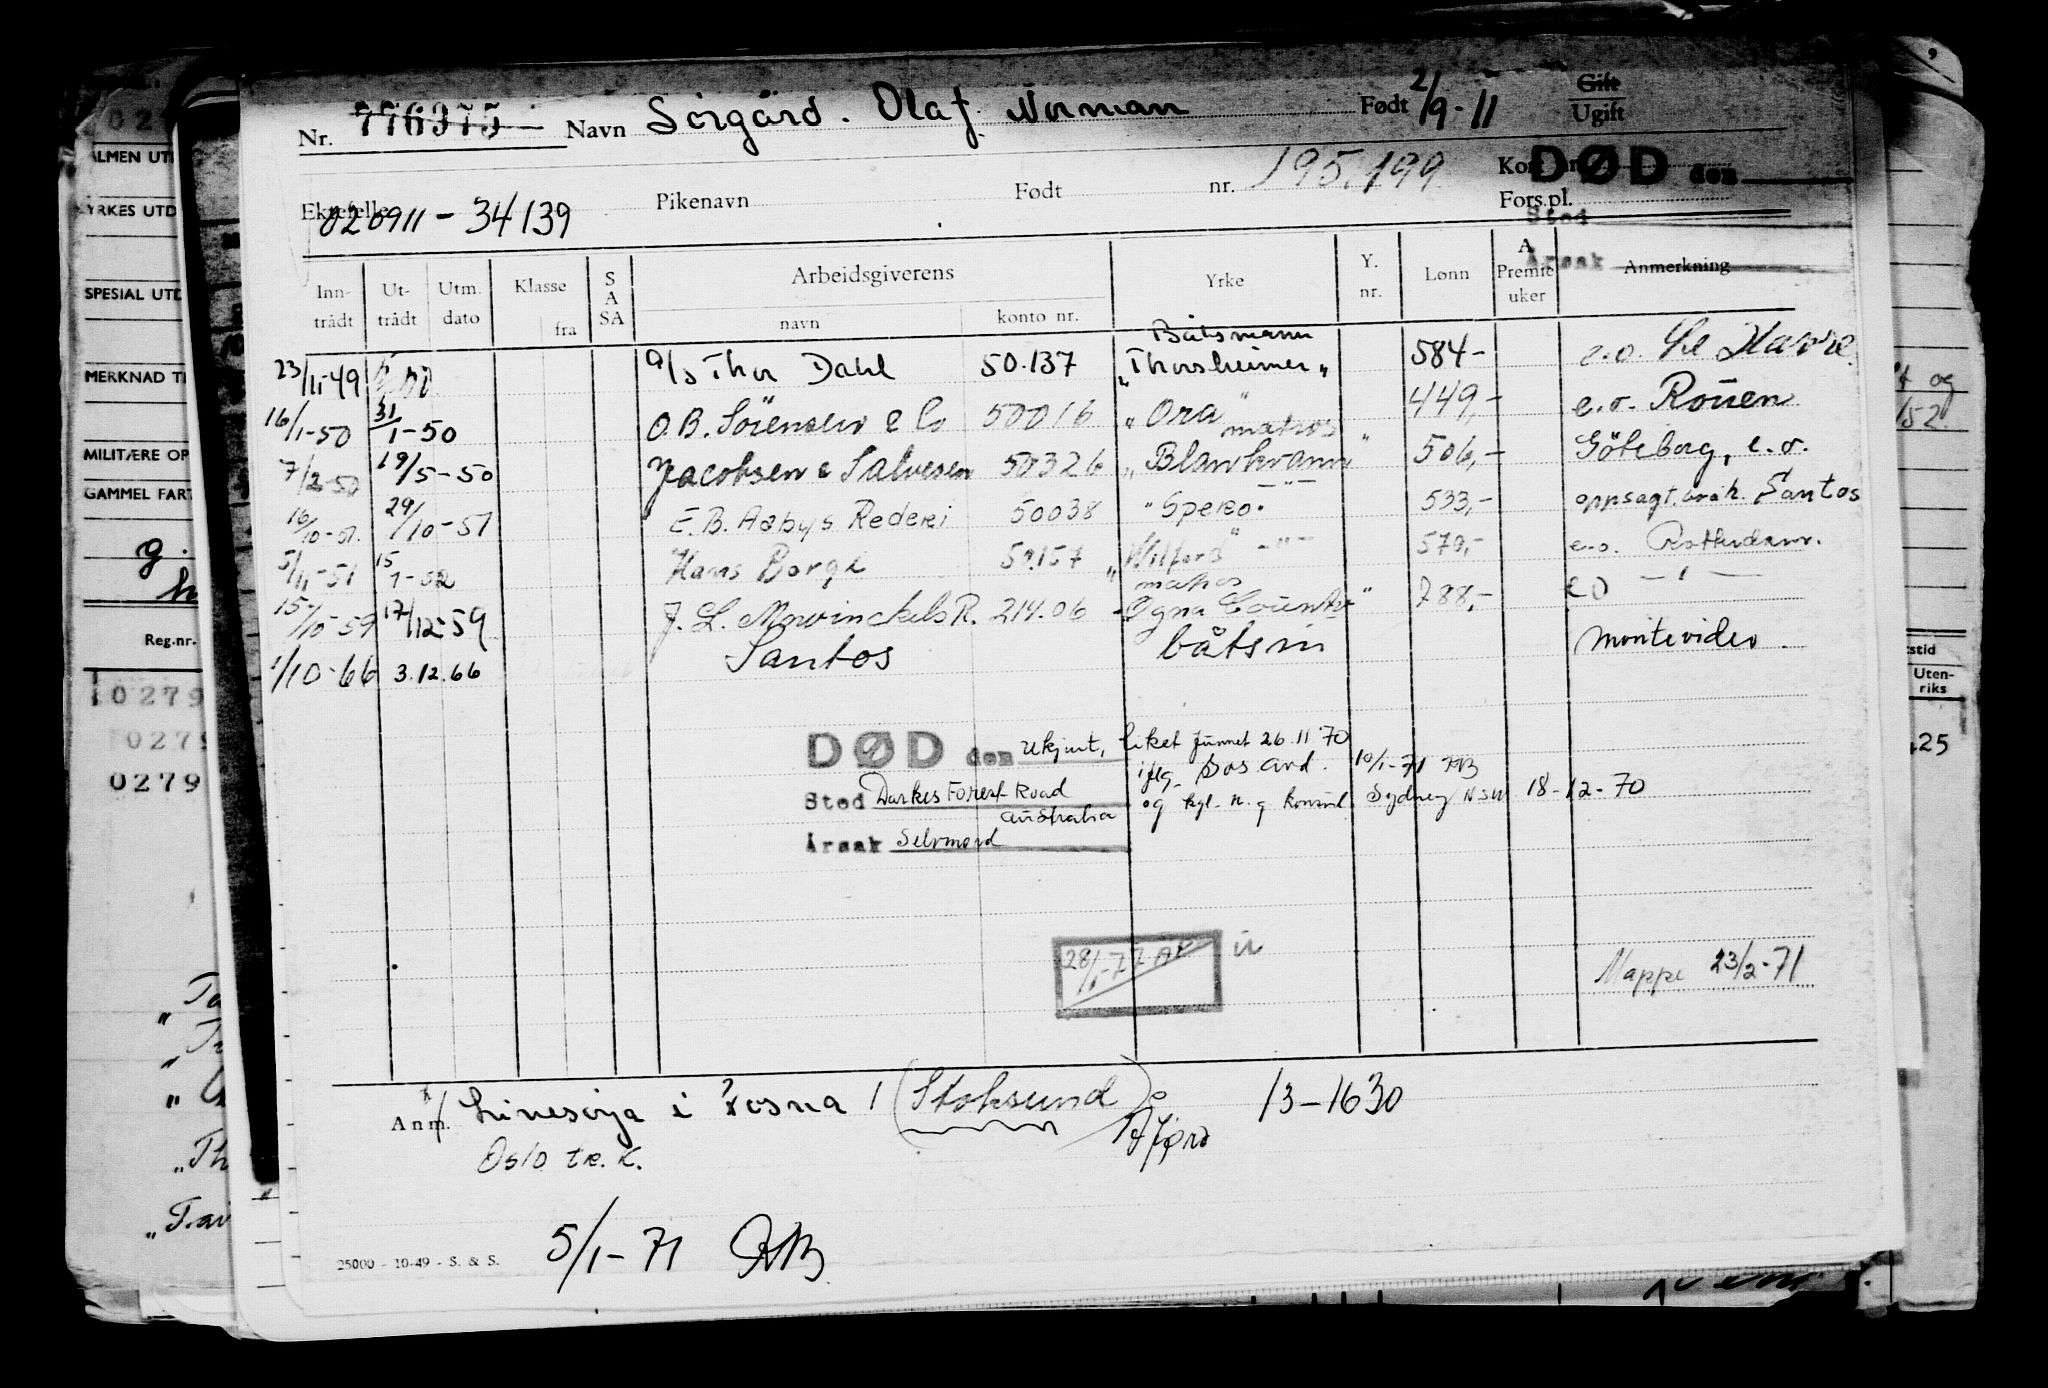 Nr. 776375 Navn Sörgård. Olaf Norman Født 2/9-11 Gift Ugift
Ektefelle 020911-34139 Pikenavn Født nr. 195.199 DØD den
Fors.pl.
Sted
Årsak
Inn-trådt Ut-trådt Utm. dato Klasse fra SASA Arbeidsgiverens navn konto nr. Yrke Y. nr. Lønn A Premie uker Anmerkning
Båtsmann
23/11-49 a/s Thor Dahl 50.137 "Thorsheimer" 584- e.o. Le Havre
16/1-50 31/1-50 O.B. Sörensen & Co 50016 "Ora" 449,- e.o. Rouen
matros
7/2-50 19/5-50 Jacobsen & Salvesen 50326 "Blankvann" 506,- Göteborg, e.o.
16/10-51. 29/10-51 E.B. Aabys Rederi 50038 "Spero" -"- 533,- oppsagt Santos
5/11-51 15/1-52 Hans Borge 50.157 "Wilford" -"- 579,- e.o. Rotterdam.
matros
15/10-59 17/12-59 J.L. Mowinckels R. 214.06 "Ogna 788,- eo -"-
1/10-66 3.12.66 Santos båtsm Montevideo.
DØD den ukjent, liket funnet 26.11.70
iflg. Sos. avd. 10/1-71
Sted Darkes Forest Road Australia
og kgl. n. g. konsul. Sydney NSW 18-12-70
Årsak Selvmord
28/1-77
Mappe 23/2-71
Anm. Linesøya i Fosna (Stoksund) 13-1630
Åfjord
Oslo tr.k.
5/1-71
25000 - 10-49 - S. & S.
ALMEN UT
YRKES UTD
SPESIAL UTD
MERKNAD T
MILITÆRE OP
GAMMEL FART
Reg.nr.
0279
0279
0279
Uten-riks